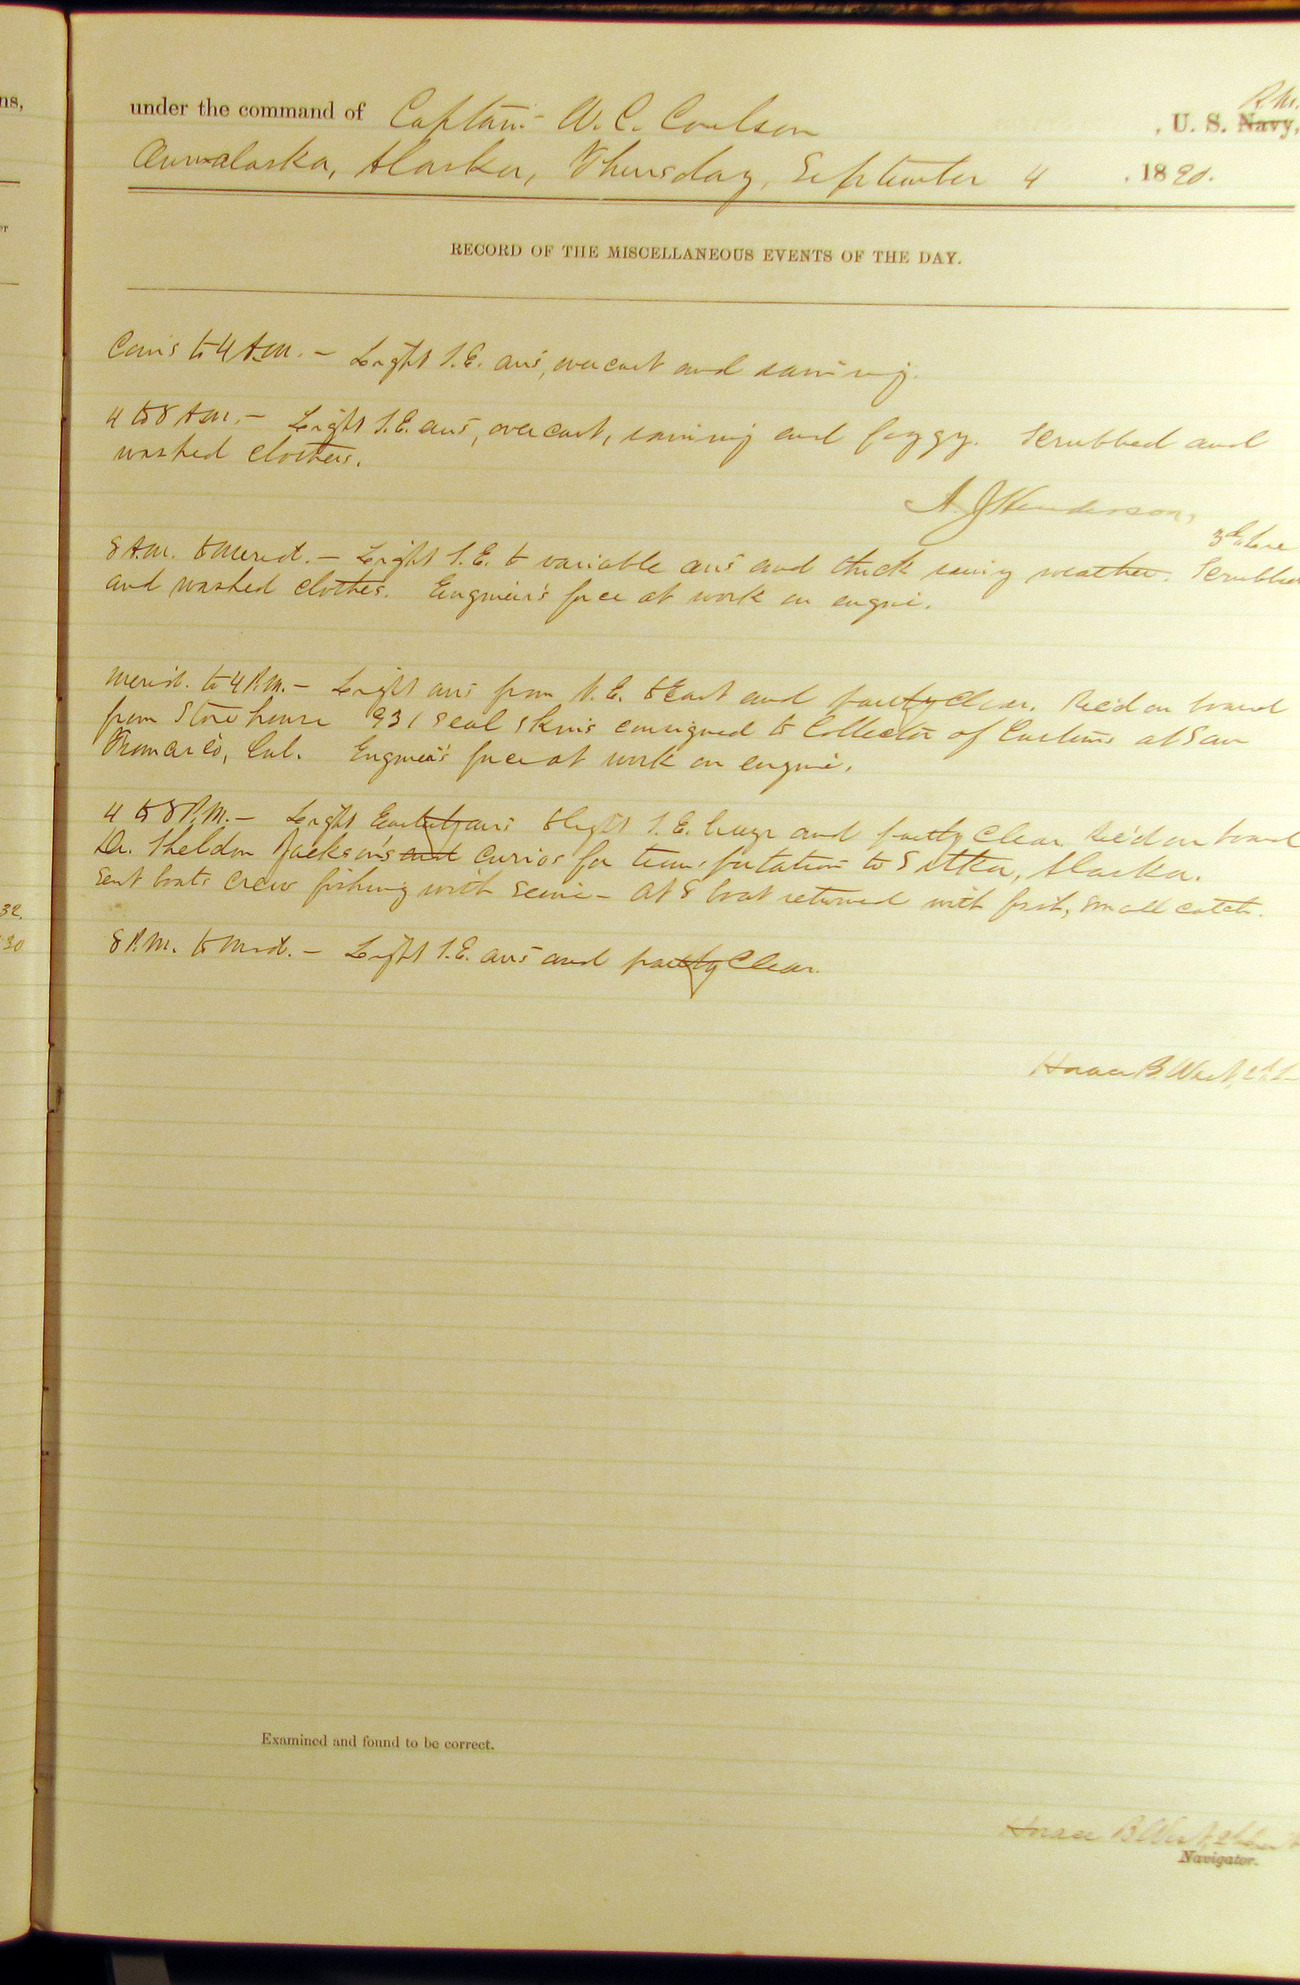 ns,
under the command of Captain W. C. Coulson , U. S. Navy, R. M.
Ounalaska, Alaska, Thursday, September 4 , 1890.
RECORD OF THE MISCELLANEOUS EVENTS OF THE DAY.
Com's to 4 A.M. — Light S.E. airs, overcast and raining.
4 to 8 A.M. — Light S.E. airs, overcast, raining and foggy. Scrubbed and
washed clothes.
A. J. Henderson,
3d Lieu
8 A.M. to Merid. — Light S.E. to variable airs and thick rainy weather. Scrubbed
and washed clothes. Engineer's force at work on engine.
Merid. to 4 P.M. — Light airs from S.E. to East and partly clear. Rec'd on board
from Store house 931 seal skins consigned to Collector of Customs at San
Francisco, Cal. Engineer's force at work on engine.
4 to 8 P.M. — Light Easterly airs to light S.E. breeze and partly clear. Rec'd on board
Dr. Sheldon Jackson's and curios for transportation to Sitka, Alaska.
Sent boats crew fishing with seine — At 8 boat returned with fish, small catch.
32.
30
8 P.M. to Mid. — Light S.E. airs and partly clear.
Horace B. West, 2d L
Examined and found to be correct.
Horace B. West, 2d Lieut
Navigator.